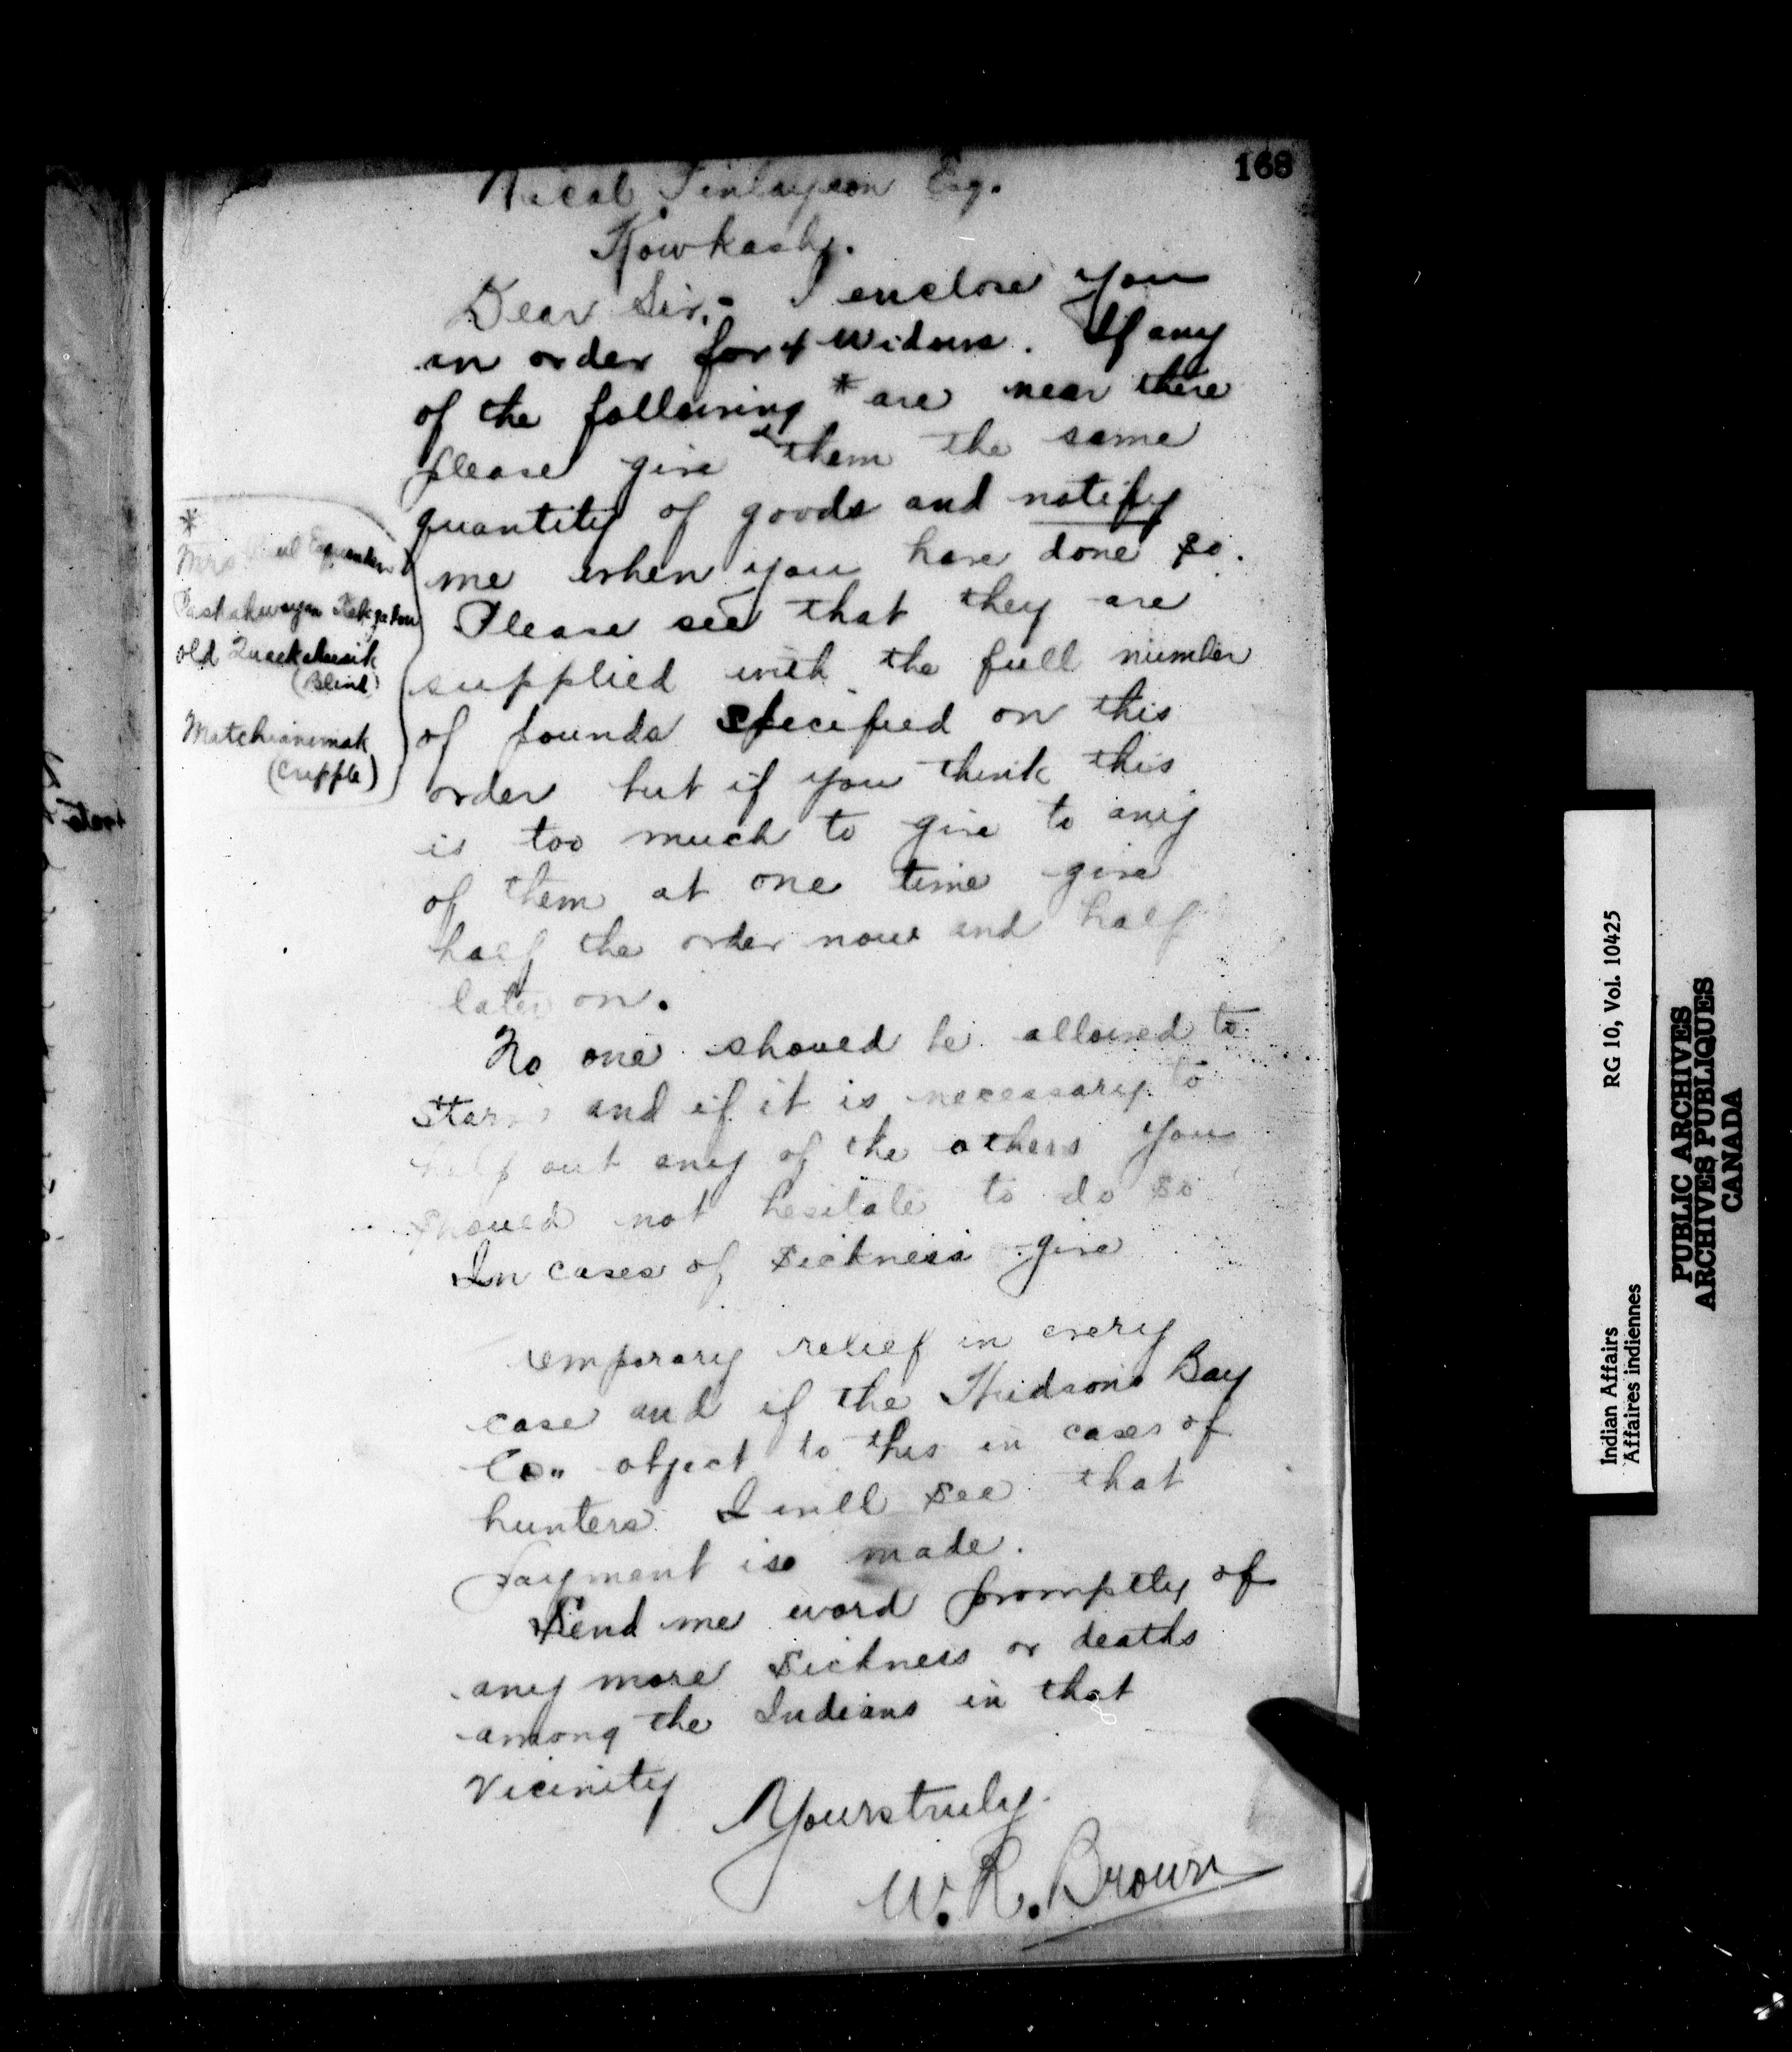 168
Nicol Finlayson Esq.
Kowkash.
Dear Sir,- I enclose you
an order for 4 widows. If any
of the following * are near there
please give them the same
quantity of goods and notify
me when you have done so.
Please see that they are
supplied with the full number
of pounds specified on this
order but if you think this
is too much to give to any
of them at one time give
half the order now and half
later on.
No one should be allowed to
starve and if it is necessary to
help out any of the others you
should not hesitate to do so
In cases of sickness give
temporary relief in every
case and if the Hudsons Bay
Co" object to this in cases of
hunters I will see that
payment is made.
Send me word promptly of
any more sickness or deaths
among the Indians in that
vicinity
Yours truly
W. R. Brown
*
Mrs
old
(Blind)
Matchianimak
(cripple)
Indian Affairs RG 10, Vol. 10425
Affaires indiennes
PUBLIC ARCHIVES
ARCHIVES PUBLIQUES
CANADA